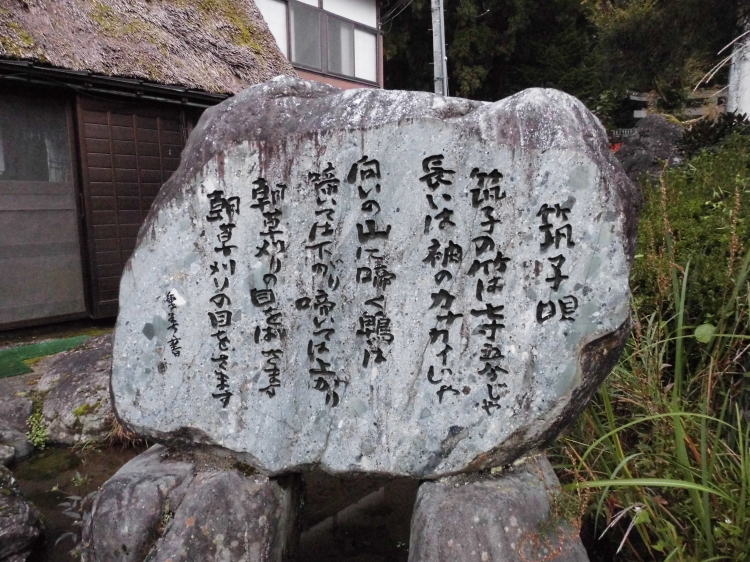 筑子唄
筑子の竹は七寸五分じゃ
長いは袖のカナカイじゃ
向いの山に啼く鵯は
啼いては下がり啼いては上がり
朝草刈りの目をばさます
朝草刈りの目をさます
書